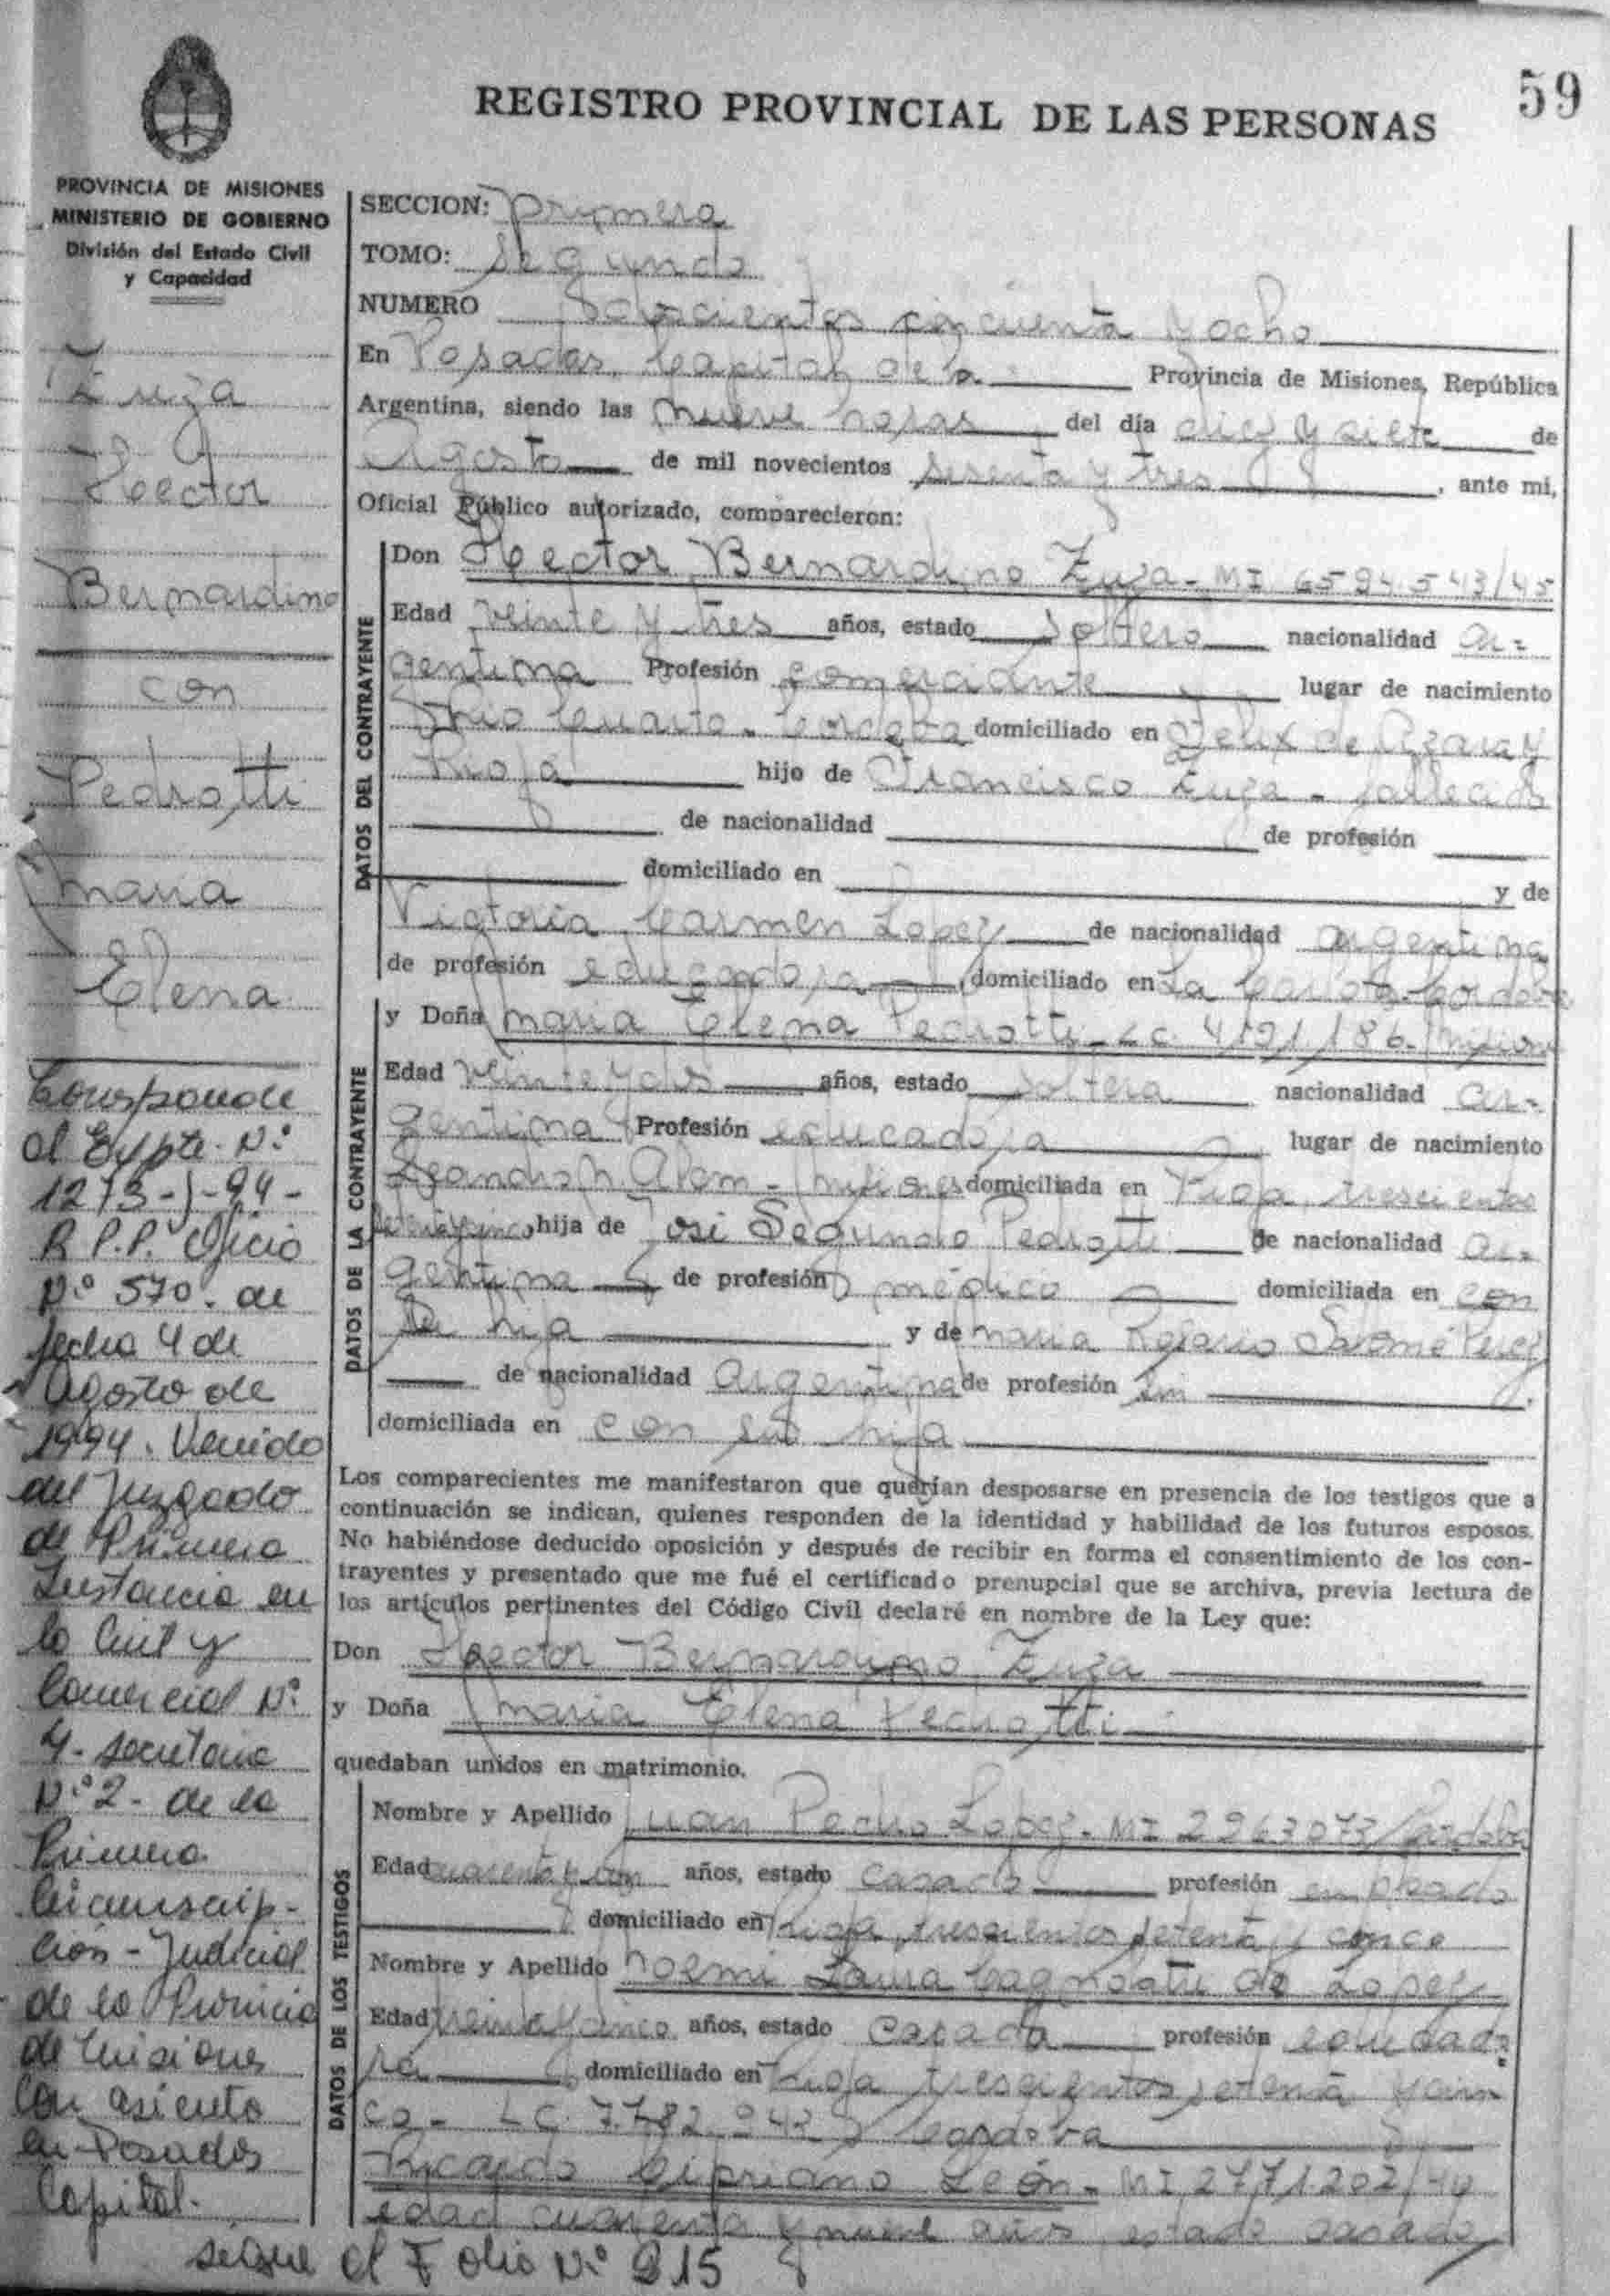 59
REGISTRO PROVINCIAL DE LAS PERSONAS
PROVINCIA DE MISIONES
MINISTERIO DE GOBIERNO
División del Estado Civil
y Capacidad
Zuza
Hector
Bernardino
con
Pedrotti
Maria
Elena
Corresponde
al Expte. Nº
1273-J-94-
R.P.P. Oficio
Nº 570. de
fecha 4 de
Agosto de
1994. Venido
del Juzgado
de Primera
Instancia en
lo Civil y
Comercial Nº
4- secretaria
Nº 2- de la
Primera
Circunscrip-
ción - Judicial
de la Provincia
de Misiones
con asiento
en Posadas
Capital.
SECCION: primera
TOMO: Segundo
NUMERO cincuenta y ocho
En Posadas, Capital de la Provincia de Misiones, República
Argentina, siendo las nueve horas del día diez y siete de
Agosto de mil novecientos sesenta y tres, ante mi,
Oficial Público autorizado, comparecieron:
DATOS DEL CONTRAYENTE
Don Hector Bernardino Zuza - MI 6594543/45
Edad veinte y tres años, estado soltero nacionalidad ar-
gentina Profesión comerciante lugar de nacimiento
Rio Cuarto - Cordoba domiciliado en Felix de Azara y
Rioja hijo de Francisco Zuza - fallecido
de nacionalidad de profesión
domiciliado en y de
Victoria Carmen Lopez de nacionalidad argentina
de profesión educadora domiciliado en La Carlota Cordoba
DATOS DE LA CONTRAYENTE
y Doña Maria Elena Pedrotti - LC. 4191186 - Misiones
Edad veinte y dos años, estado soltera nacionalidad ar-
gentina Profesión educadora lugar de nacimiento
Leandro N. Alem - Misiones domiciliada en Rioja trescientos
setenta y cinco hija de José Segundo Pedrotti de nacionalidad ar-
gentina de profesión médico domiciliada en con
su hija y de Maria Rosario Salomé Perez
de nacionalidad argentina de profesión sin
domiciliada en con su hija
Los comparecientes me manifestaron que querían desposarse en presencia de los testigos que a
continuación se indican, quienes responden de la identidad y habilidad de los futuros esposos.
No habiéndose deducido oposición y después de recibir en forma el consentimiento de los con-
trayentes y presentado que me fué el certificado prenupcial que se archiva, previa lectura de
los artículos pertinentes del Código Civil declaré en nombre de la Ley que:
Don Hector Bernardino Zuza
y Doña Maria Elena Pedrotti
quedaban unidos en matrimonio.
DATOS DE LOS TESTIGOS
Nombre y Apellido Juan Pedro Lopez - MI 2963073/Cordoba
Edad cuarenta y años, estado casado profesión empleado
domiciliado en Rioja trescientos setenta y cinco
Nombre y Apellido Noemi Laura de Lopez
Edad treinta y cinco años, estado casada profesión educado-
ra domiciliado en Rioja trescientos setenta y cin
co - LC. 7.782.943 / Cordoba
Ricardo Cipriano León - MI 2771.202/44
edad cuarenta y nueve años, estado casado
sigue el Folio Nº 215